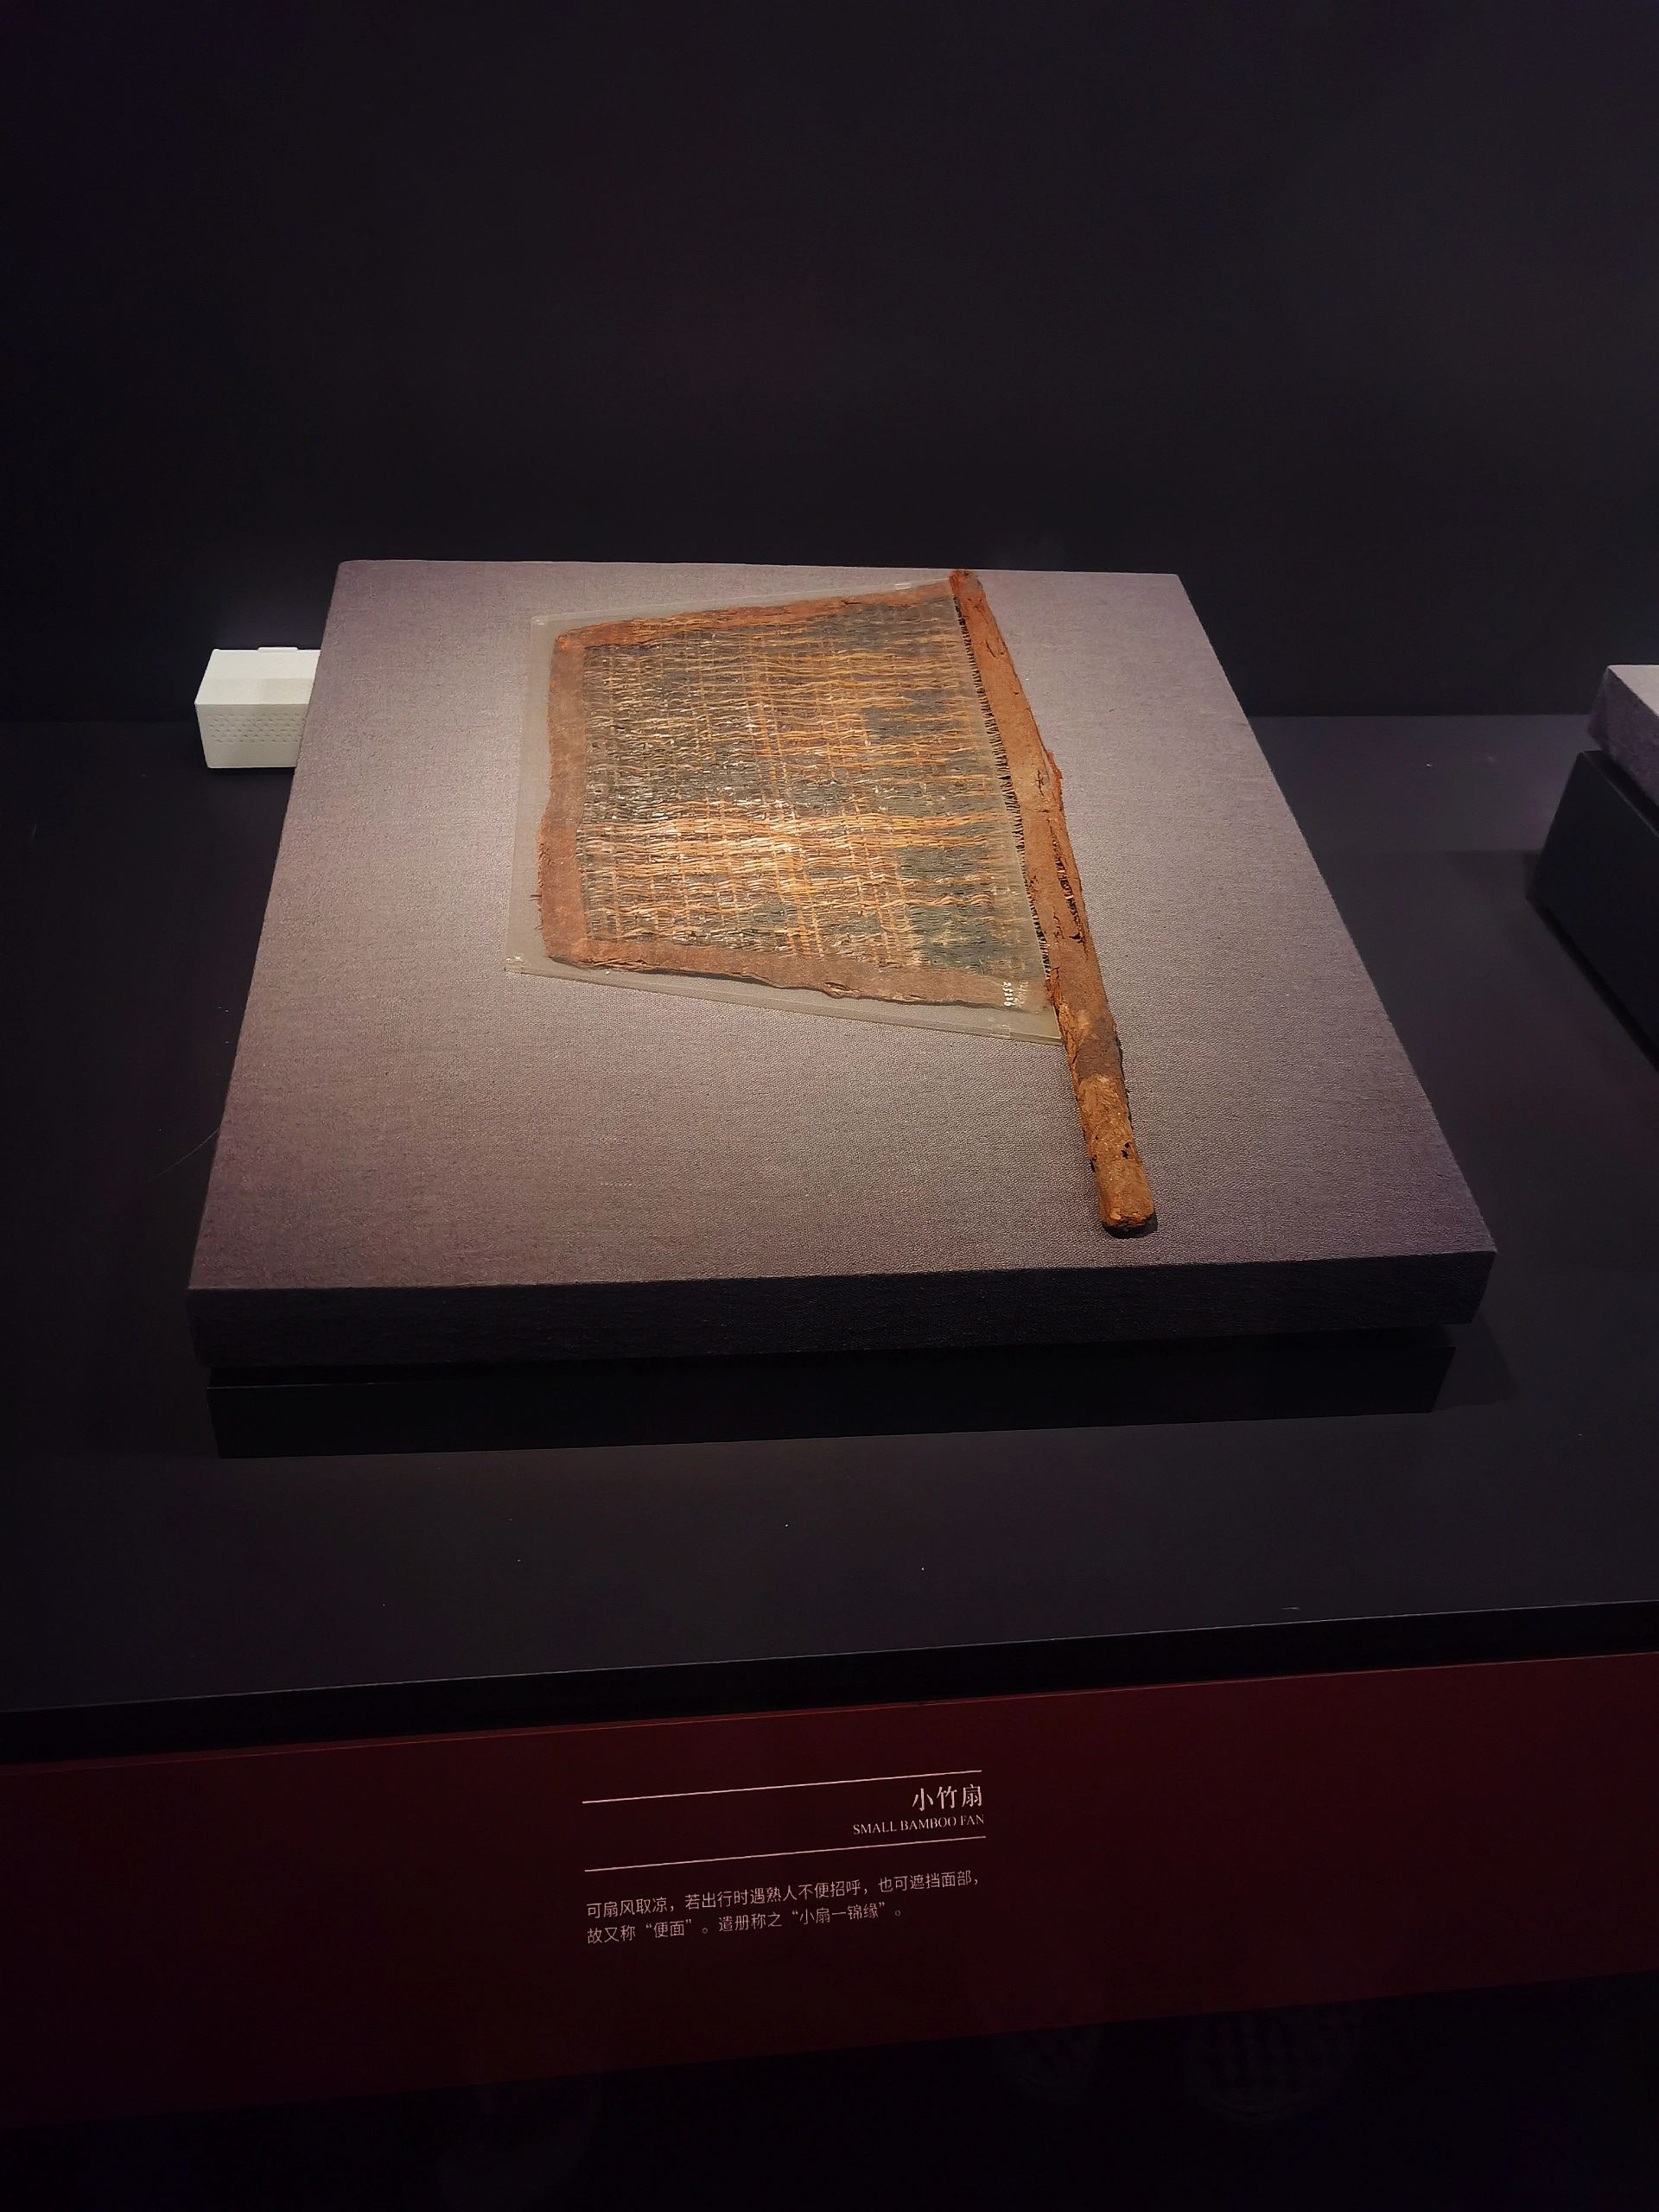 小竹扇
SMALL BAMBOO FAN
可扇风取凉，若出行时遇熟人不便招呼，也可遮挡面部，
故又称“便面”。遣册称之“小扇一锦缘”。